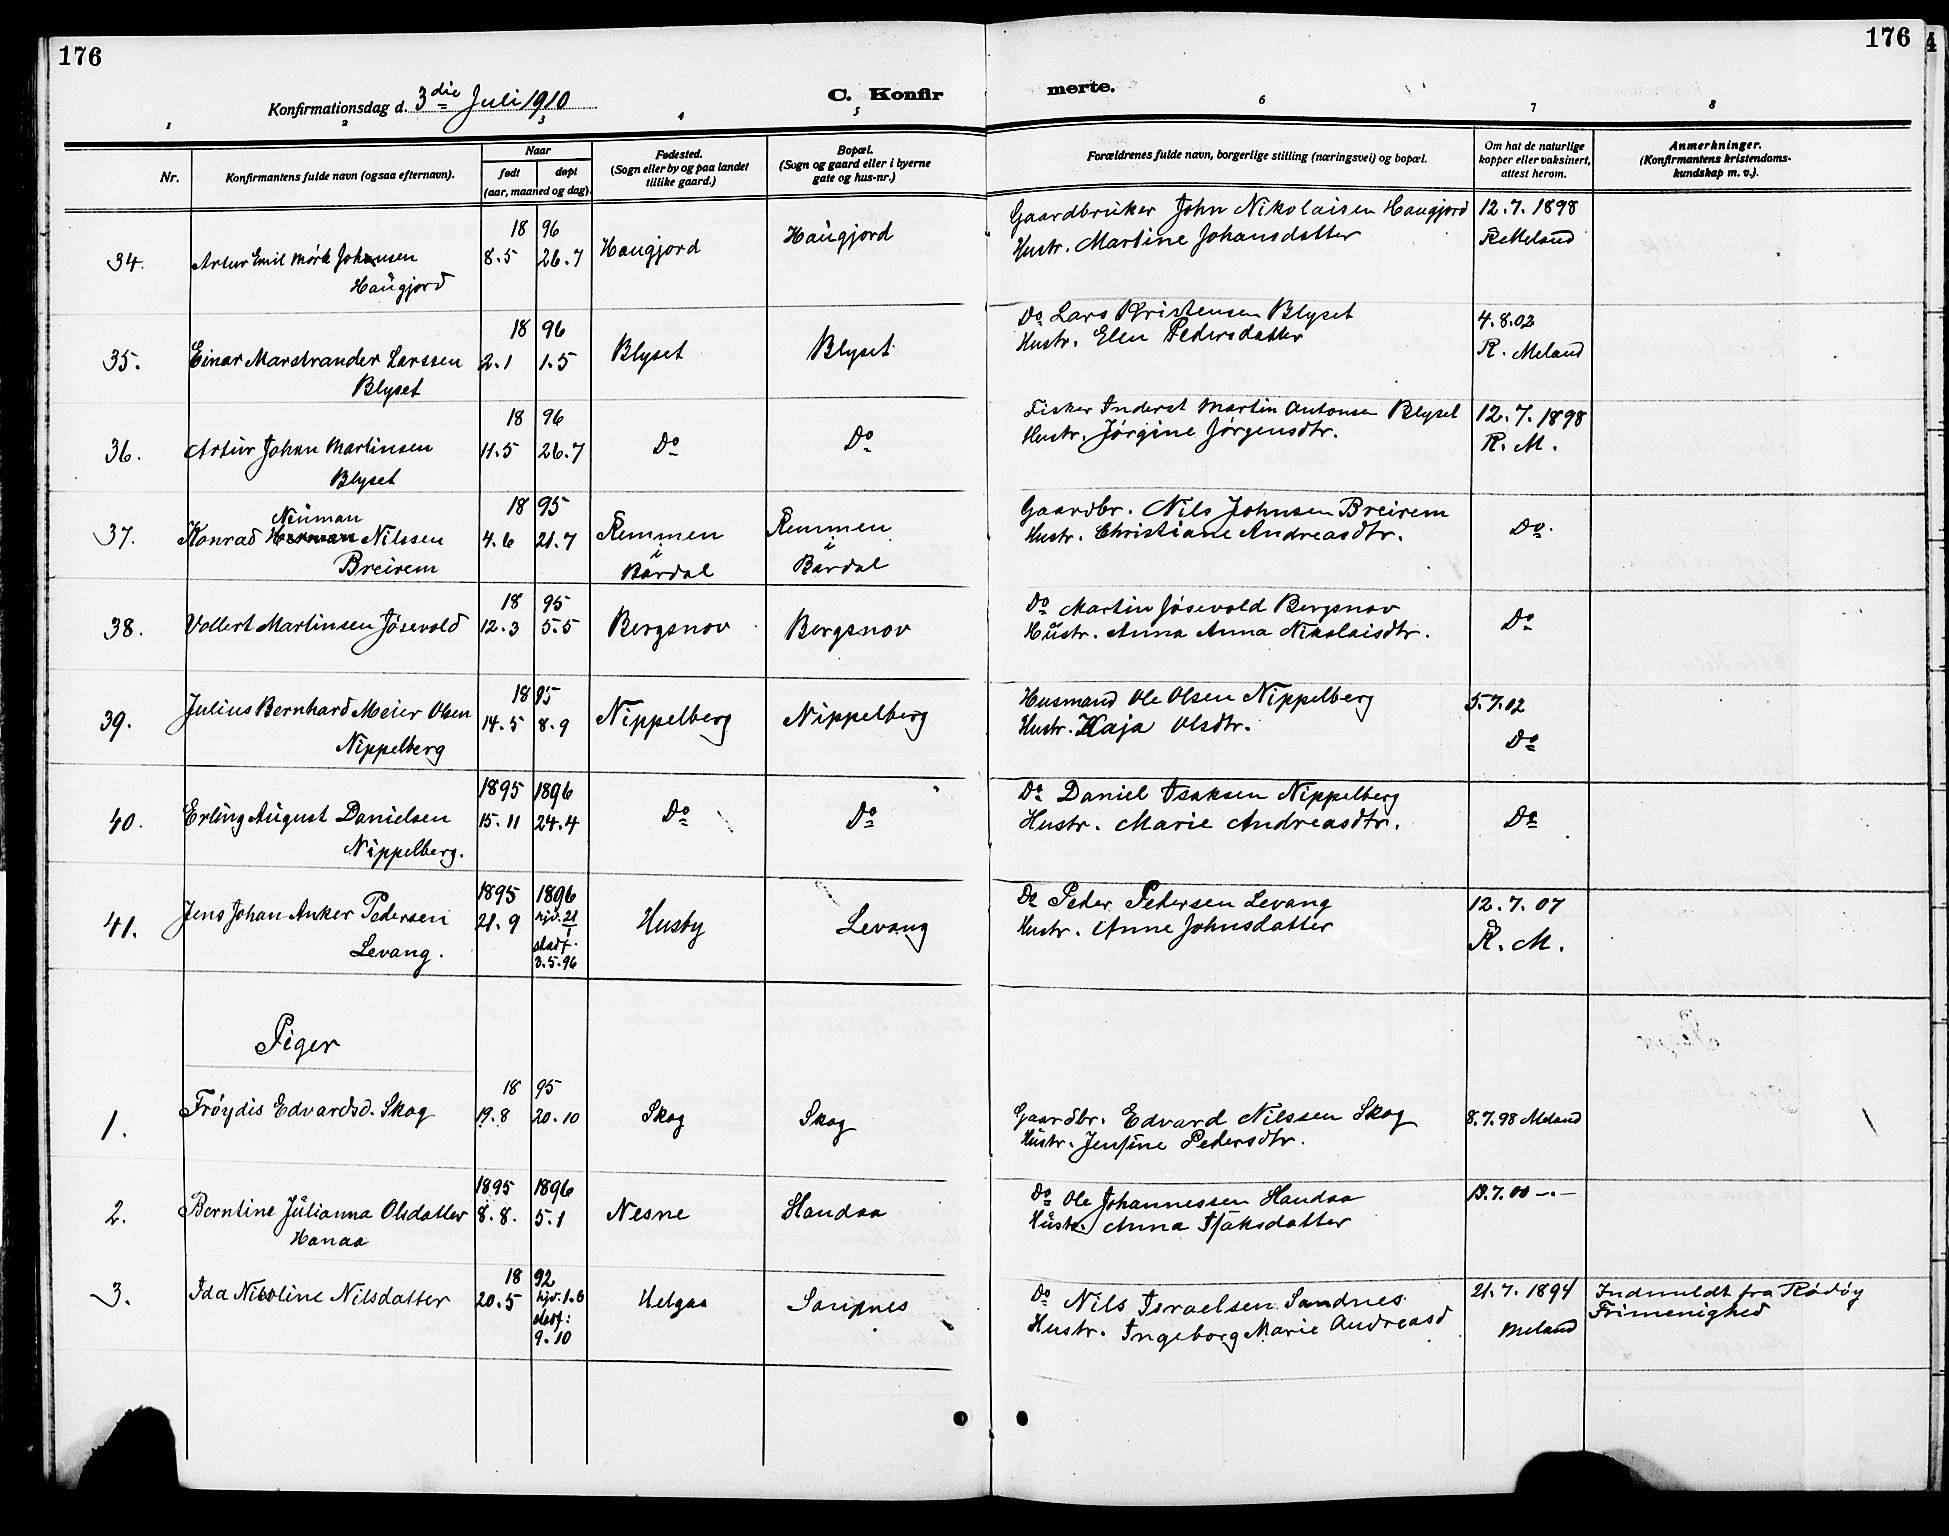 176
176
Konfirmationsdag d. 3die Juli 1910
C. Konfir
merte.
1
2
3
4
5
6
7
8
Nr.
Konfirmantens fulde navn (ogsaa efternavn).
Naar
født
døpt
(aar, maaned og dag).
Fødested.
(Sogn eller by og paa landet
tillike gaard.)
Bopæl.
(Sogn og gaard eller i byerne
gate og hus-nr.)
Forældrenes fulde navn, borgerlige stilling (næringsvei) og bopæl.
Om hat de naturlige
kopper eller vaksinert,
attest herom.
Anmerkninger.
(Konfirmantens kristendoms-
kundskap m. v.).
18 96
34. Artur Emil Mørk Johansen 8.5 26.7 Haugjord Haugjord
Haugjord
Gaardbruker John Nikolaisen Haugjord 12.7.1898
Hustr. Martine Johansdatter R Meland
18 96
35. Einar Marstrander Larssen 2.1 1.5 Blyset Blyset
Blyset
Do Lars Kristensen Blyset 4.8.02
Hustr. Elen Pedersdatter R. Meland
18 96
36. Artur Johan Martinsen 11.5 26.7 Do Do
Blyset
Fisker Inderst Martin Antonsen Blyset 12.7.1898
Hustr. Jørgine Jørgensdtr. R. M.
18 95
Neuman
37. Konrad Herman Nilssen 4.6 21.7 Remmen Remmen
Breirem i Bardal i Bardal
Gaardbr. Nils Johnsen Breirem
Hustr. Christiane Andreasdtr. Do.
18 95
38. Vollert Martinsen Jøsevold 12.3 5.5 Bergsnov Bergsnov
Do Martin Jøsevold Bergsnov
Hustr. Anna Anna Nikolaisdtr. Do
18 95
39. Julius Bernhard Meier Olsen 14.5 8.9 Nippelberg Nippelberg
Nippelberg
Husmand Ole Olsen Nippelberg 5.7.02
Hustr. Kaja Olsdtr. Do
1895 1896
40. Erling August Danielsen 15.11 24.4 Do Do
Nippelberg.
Do Daniel Isaksen Nippelberg
Hustr. Marie Andreasdtr. Do
1895 1896
41. Jens Johan Anker Pedersen 21.9 hjd. 21/1 Husby Levang
Levang. stadf. 3.5.96
Do Peder Pedersen Levang 12.7.07
Hustr. Anne Johnsdatter R. M.
Piger
18 95
1. Frøydis Edvardsd. Skog 19.8 20.10 Skog Skog
Gaardbr. Edvard Nilssen Skog 8.7.98 Meland
Hustr. Jensine Pedersdtr.
1895 1896
2. Berntine Julianna Olsdatter 8.8. 5.1 Nesne Handaa
Hanaa
Do Ole Johannessen Handaa 13.7.00 -.-
Hustr. Anna Isaksdatter
18 92
3. Ida Nicoline Nilsdatter 20.5 hjd. 1.6 Helgaa
stadf: 9.10
Do Nils Israelsen Sandnes 21.7.1894 Indmeldt fra Rødøy
Hustr. Ingeborg Marie Andreasd Meland Frimenighed